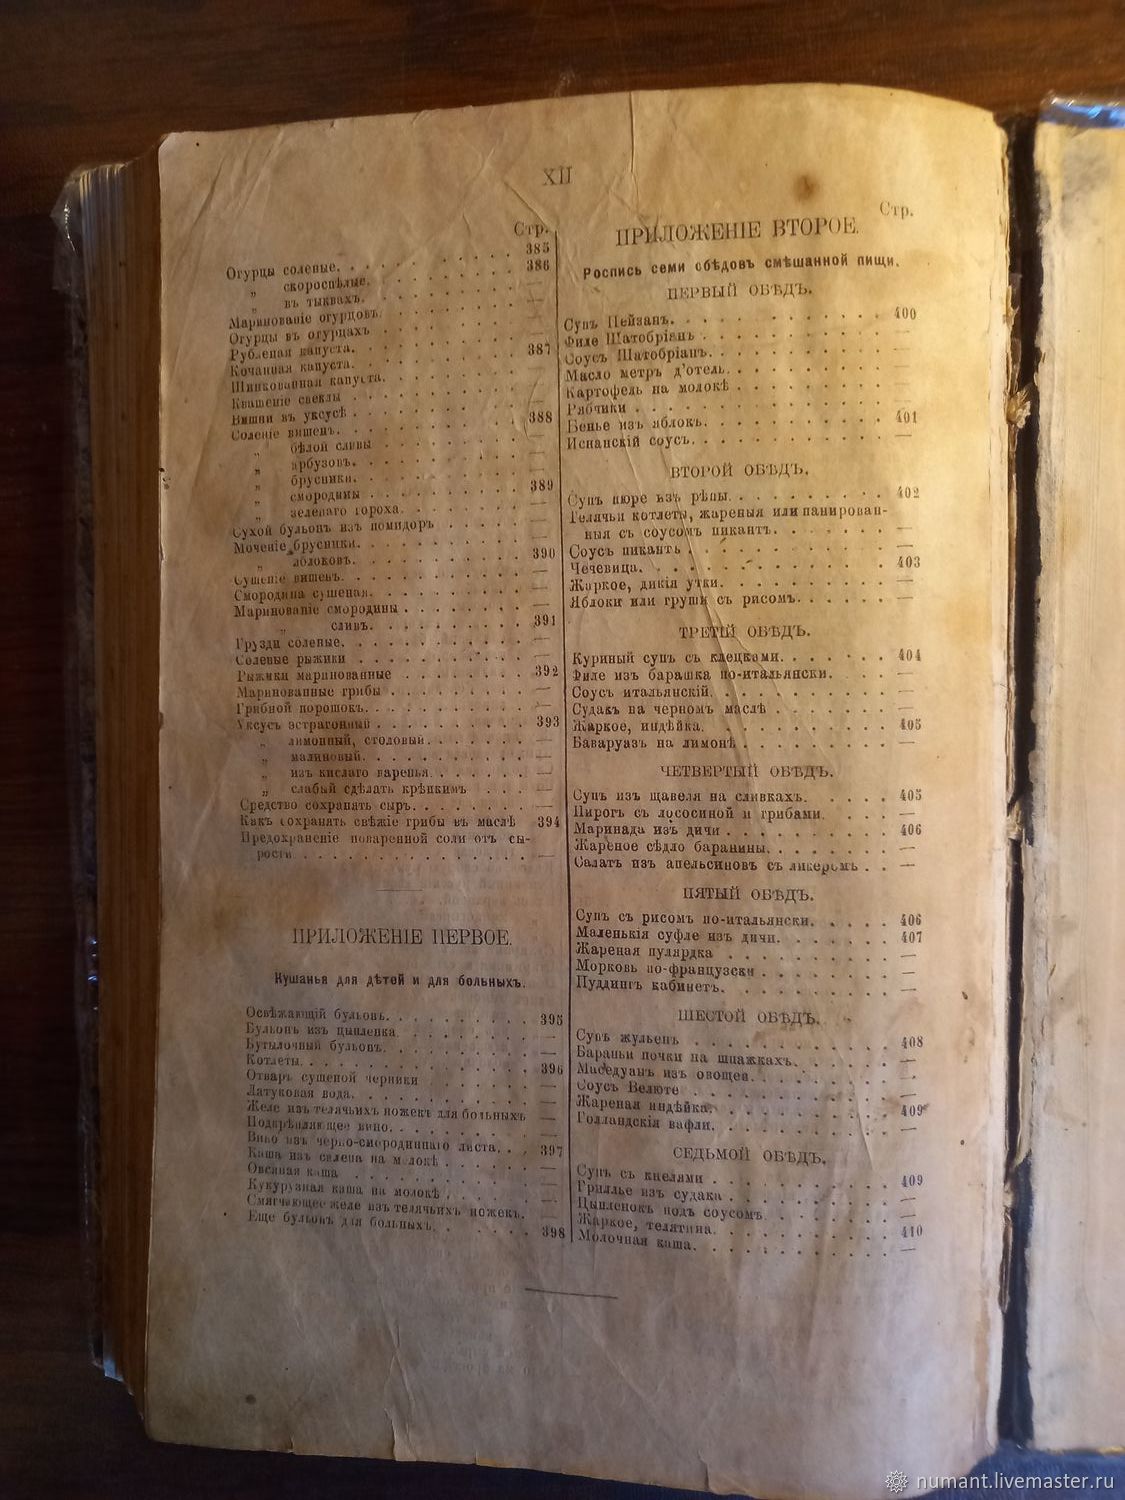 XII
Стр.
Огурцы соленые. 385
„ скороспѣлые. 386
„ въ тыквахъ. —
Маринованіе огурцовъ. —
Огурцы въ огурцахъ —
Рубленая капуста. —
Кочанная капуста. 387
Шинкованная капуста. —
Квашеніе свеклы —
Вишни въ уксусѣ —
Соленіе вишенъ. 388
„ бѣлой сливы —
„ арбузовъ. —
„ брусники. —
„ смородины 389
„ зеленаго гороха. —
Сухой бульонъ изъ помидоръ —
Моченіе брусники. —
„ яблоковъ. 390
Сушеніе вишевъ. —
Смородина сушеная. —
Маринованіе смородины —
„ сливъ. 391
Грузди соленые. —
Солевые рыжики —
Рыжики маринованные 392
Маринованные грибы —
Грибной порошокъ. —
Уксусъ эстрагонный 393
„ лимонный, столовый. —
„ малиновый. —
„ изъ кислаго варенья. —
„ слабый сдѣлать крѣпкимъ —
Средство сохранять сыръ. —
Какъ сохранять свѣжіе грибы въ маслѣ 394
Предохраненіе поваренной соли отъ сы-
рости. —
ПРИЛОЖЕНІЕ ПЕРВОЕ.
Кушанья для дѣтей и для больныхъ.
Освѣжающій бульонъ. 395
Бульонъ изъ цыпленка. —
Бутылочный бульонъ. —
Котлеты. 396
Отваръ сушеной черники —
Латуковая вода. —
Желе изъ телячьихъ ножекъ для больныхъ —
Подкрѣпляющее вино. —
Вино изъ черно-смородиннаго листа. 397
Каша изъ на молокѣ —
Овсяная каша —
Кукурузная каша на молокѣ —
Смягчающее желе изъ телячьихъ ножекъ. —
Еще бульонъ для больныхъ. 398
Стр.
ПРИЛОЖЕНІЕ ВТОРОЕ.
Роспись семи обѣдовъ смѣшанной пищи.
ПЕРВЫЙ ОБѢДЪ.
Супъ Пейзанъ. 400
Филе Шатобріанъ —
Соусъ Шатобріанъ. —
Масло метръ д'отель. —
Картофель на молокѣ —
Рябчики —
Бенье изъ яблокъ. 401
Испанскій соусъ. —
ВТОРОЙ ОБѢДЪ.
Супъ пюре изъ рѣпы. 402
Телячьи котлеты, жареныя или панирован-
ныя съ соусомъ пикантъ. —
Соусъ пикантъ —
Чечевица. 403
Жаркое, дикія утки. —
Яблоки или груши съ рисомъ. —
ТРЕТІЙ ОБѢДЪ.
Куриный супъ съ клецками. 404
Филе изъ барашка по-итальянски. —
Соусъ итальянскій. —
Судакъ на черномъ маслѣ —
Жаркое, индѣйка. 405
Баваруазъ на лимонѣ —
ЧЕТВЕРТЫЙ ОБѢДЪ.
Супъ изъ щавеля на сливкахъ. 405
Пирогъ съ лососиной и грибами. —
Маринада изъ дичи 406
Жареное сѣдло баранины. —
Салатъ изъ апельсиновъ съ ликеромъ —
ПЯТЫЙ ОБѢДЪ.
Супъ съ рисомъ по-итальянски. 406
Маленькія суфле изъ дичи. 407
Жареная пулярдка —
Морковь по-французски —
Пуддингъ кабинетъ. —
ШЕСТОЙ ОБѢДЪ.
Супъ жульенъ 408
Бараньи почки на шпажкахъ. —
Маседуанъ изъ овощей. —
Соусъ Велюте —
Жареная индѣйка. 409
Голландскія вафли. —
СЕДЬМОЙ ОБѢДЪ.
Супъ съ кнелями 409
Гриллье изъ судака —
Цыпленокъ подъ соусомъ —
Жаркое, телятина. 410
Молочная каша. —
numant.livemaster.ru